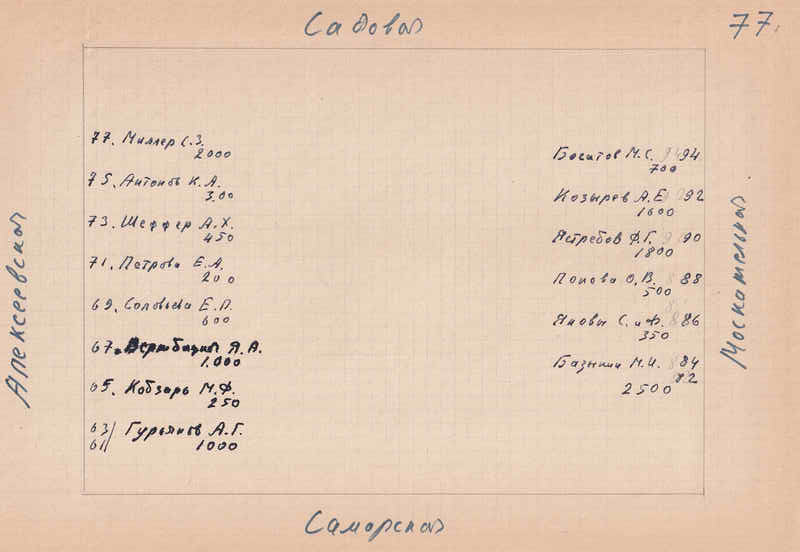 Садовая
77.
77. Миллер С.З.
2000
75. Антонов К.А.
300
73. Шеффер А.Х.
450
71. Петрова Е.А.
200
69. Соловьева Е.П.
600
67. Вербицкий Я.А.
1.000
65. Кобзарь М.Ф.
250
63/ Гурьянов А.Г.
61/ 1000
Богатов М.С. 94
700
Козырев А.Е. 92
1600
Ястребов Ф.Г. 90
1800
Попова О.В. 88
500
Яновы С. и Ф. 86
350
Базыкин М.И. 84
82
2500
Алексеевская
Москательная
Самарская